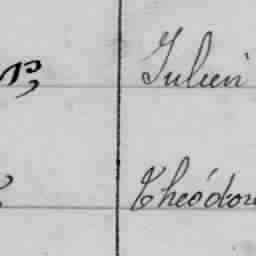 Julien
Théodor